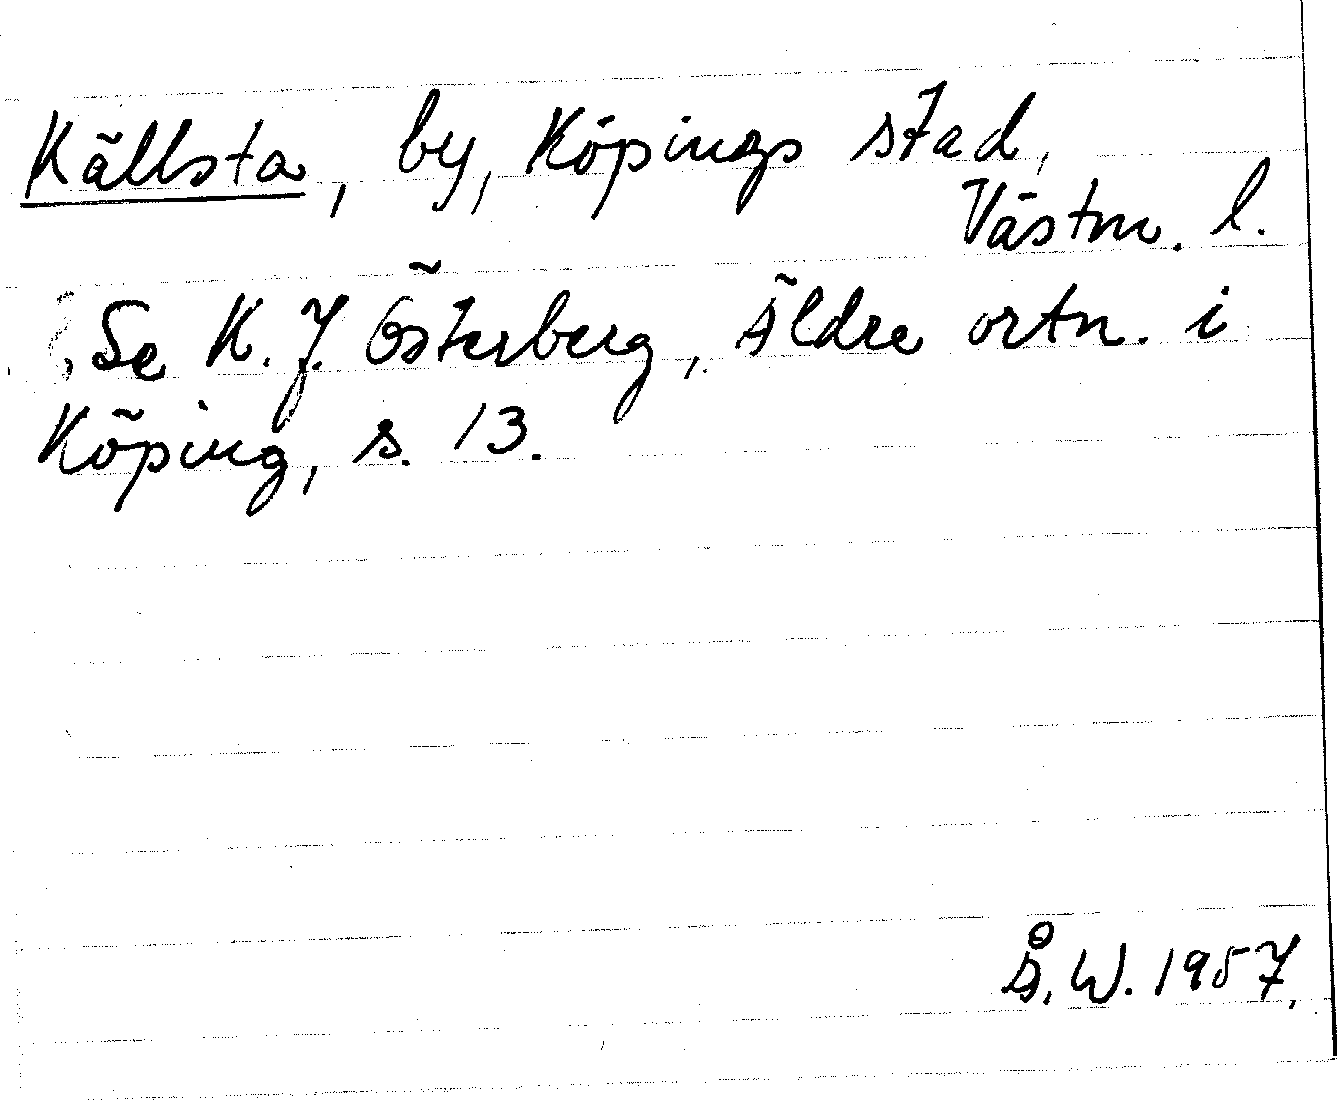 Källsta, by, Köpings stad,
Västm. l.
Se K. J. Österberg, Äldre ortn. i
Köping, s. 13.
Å. W. 1957.